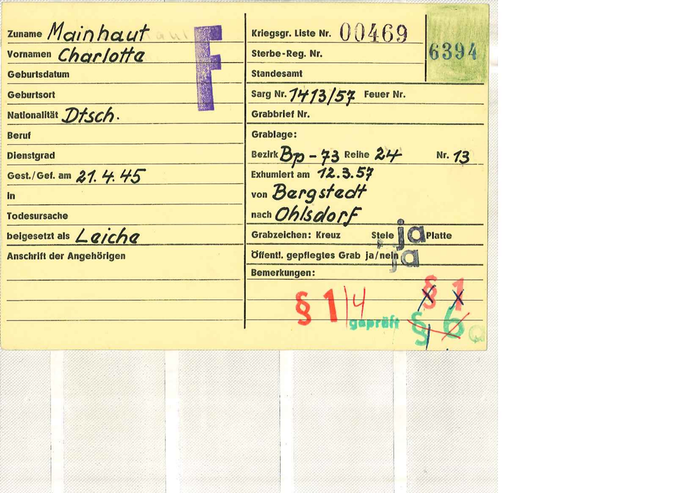 Zuname Mainhaut
Vornamen Charlotte
Geburtsdatum
Geburtsort
Nationalität Dtsch.
Beruf
Dienstgrad
Gest./Gef. am 21.4.45
in
Todesursache
beigesetzt als Leiche
Anschrift der Angehörigen
F
Kriegsgr. Liste Nr. 00469
6394
Sterbe-Reg. Nr.
Standesamt
Sarg Nr. 1413/57 Feuer Nr.
Grabbrief Nr.
Grablage:
Bezirk Bp-73 Reihe 24 Nr. 13
Exhumiert am 12.3.57
von Bergstedt
nach Ohlsdorf
Grabzeichen: Kreuz Stele ja Platte
Öffentl. gepflegtes Grab ja/nein ja
Bemerkungen:
§ 1
§ 1/4
geprüft § 6